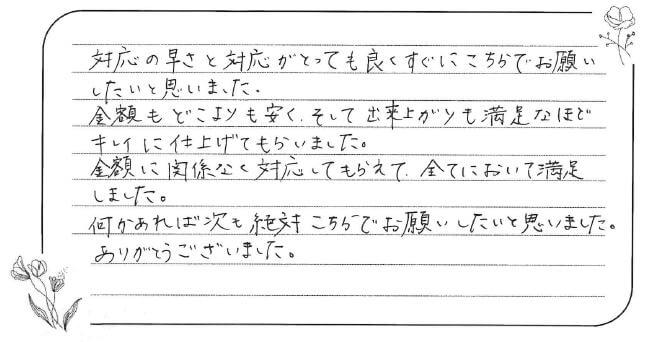 対応の早さと対応がとっても良くすぐにこちらでお願い
したいと思いました。
金額もどこよりも安く、そして出来上がりも満足なほど
キレイに仕上げてもらいました。
金額に関係なく対応してもらえて、全てにおいて満足
しました。
何かあれば次も絶対こちらでお願いしたいと思いました。
ありがとうございました。